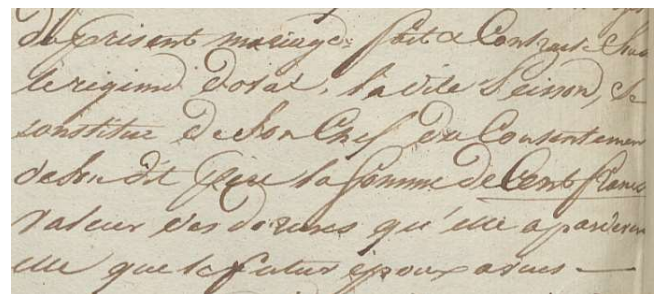 du présent mariage fait & Contracté sous
le regime dotal, la dite Peisson, se
constitue de son Chef du Consentement
de son dit père la somme de Cent francs
valeur des dorures qu'elle a pardevers
elle que le futur époux a vues —